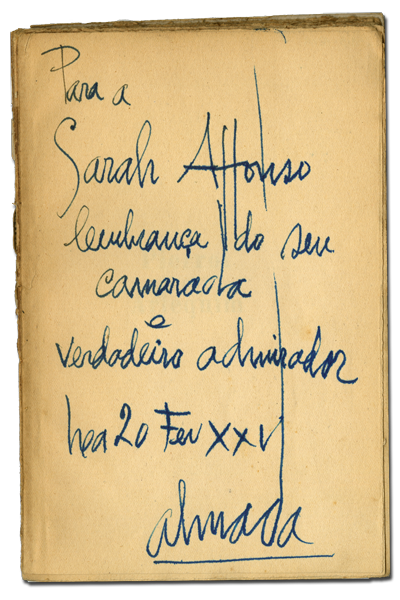 Para a
Sarah Affonso
lembrança do seu
camarada
e
verdadeiro admirador
20 Fev XXV
almada